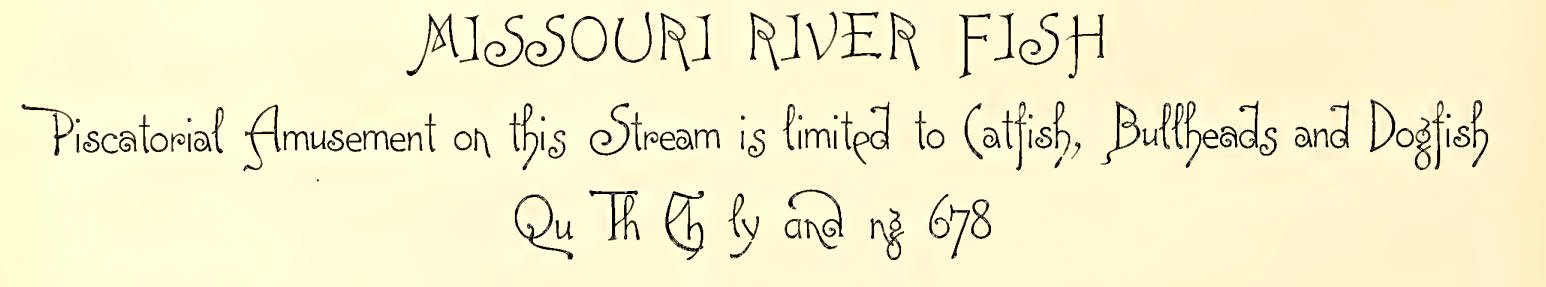 MISSOURI RIVER FISH
Piscatorial Amusement on this Stream is limited to Catfish, Bullheads and Dogfish
Qu Th Ch ly and ng 678